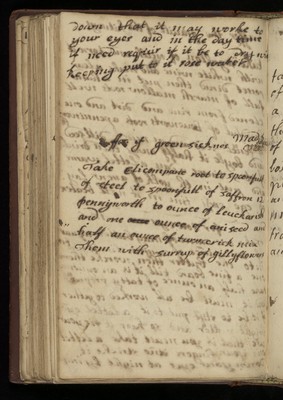 down that it may worke to
your eyes and in the day time
if need requir if it be to dry
keeping put to it rose water
of green sicknes
Take elicompane root to spoonfull
of steel to spoonfull of saffron 12
pennyworth to ounce of
and one ounce of aniseed and
half an ounce of turmerick mix
them with surrup of gillyflowers